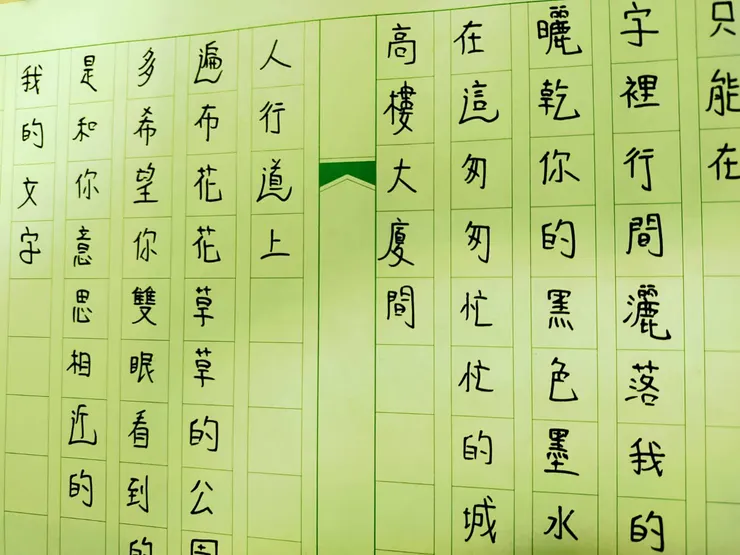 只能在
字裡行間灑落我的
曬乾你的黑色墨水
在這匆匆忙忙的城
高樓大廈間
人行道上
遍布花花草草的公
多希望你雙眼看到的
是和你意思相近的
我的文字